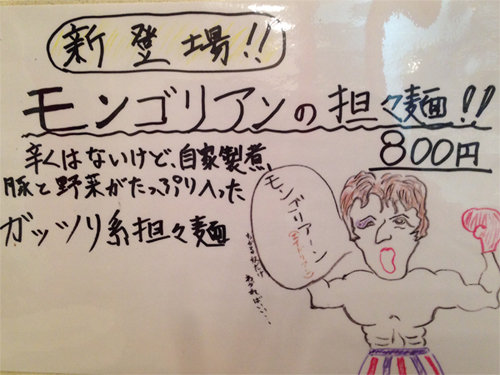 新登場!!
モンゴリアンの担々麺!!
800円
辛くはないけど、自家製煮
豚と野菜がたっぷり入った
ガッツリ系担々麺
モンテリアーン
わかる人だけ
わかればいい…